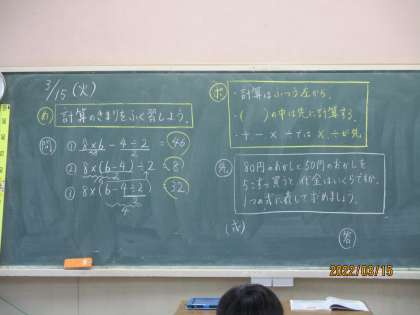 3/15 (火)
め 計算のきまりをふく習しよう。
問 ① 8×6-4÷2 = 46
48 2
② 8×(6-4)÷2 = 8
2
③ 8×(6-4÷2) = 32
2
4
ポ ・計算はふつう左から。
・( )の中は先に計算する。
・+ - × ÷では × ÷が先。
80円のおかしと50円のおかしを
5こずつ買うと代金はいくらですか。
1つの式に表して求めましょう。
(式)
答
2022/03/15